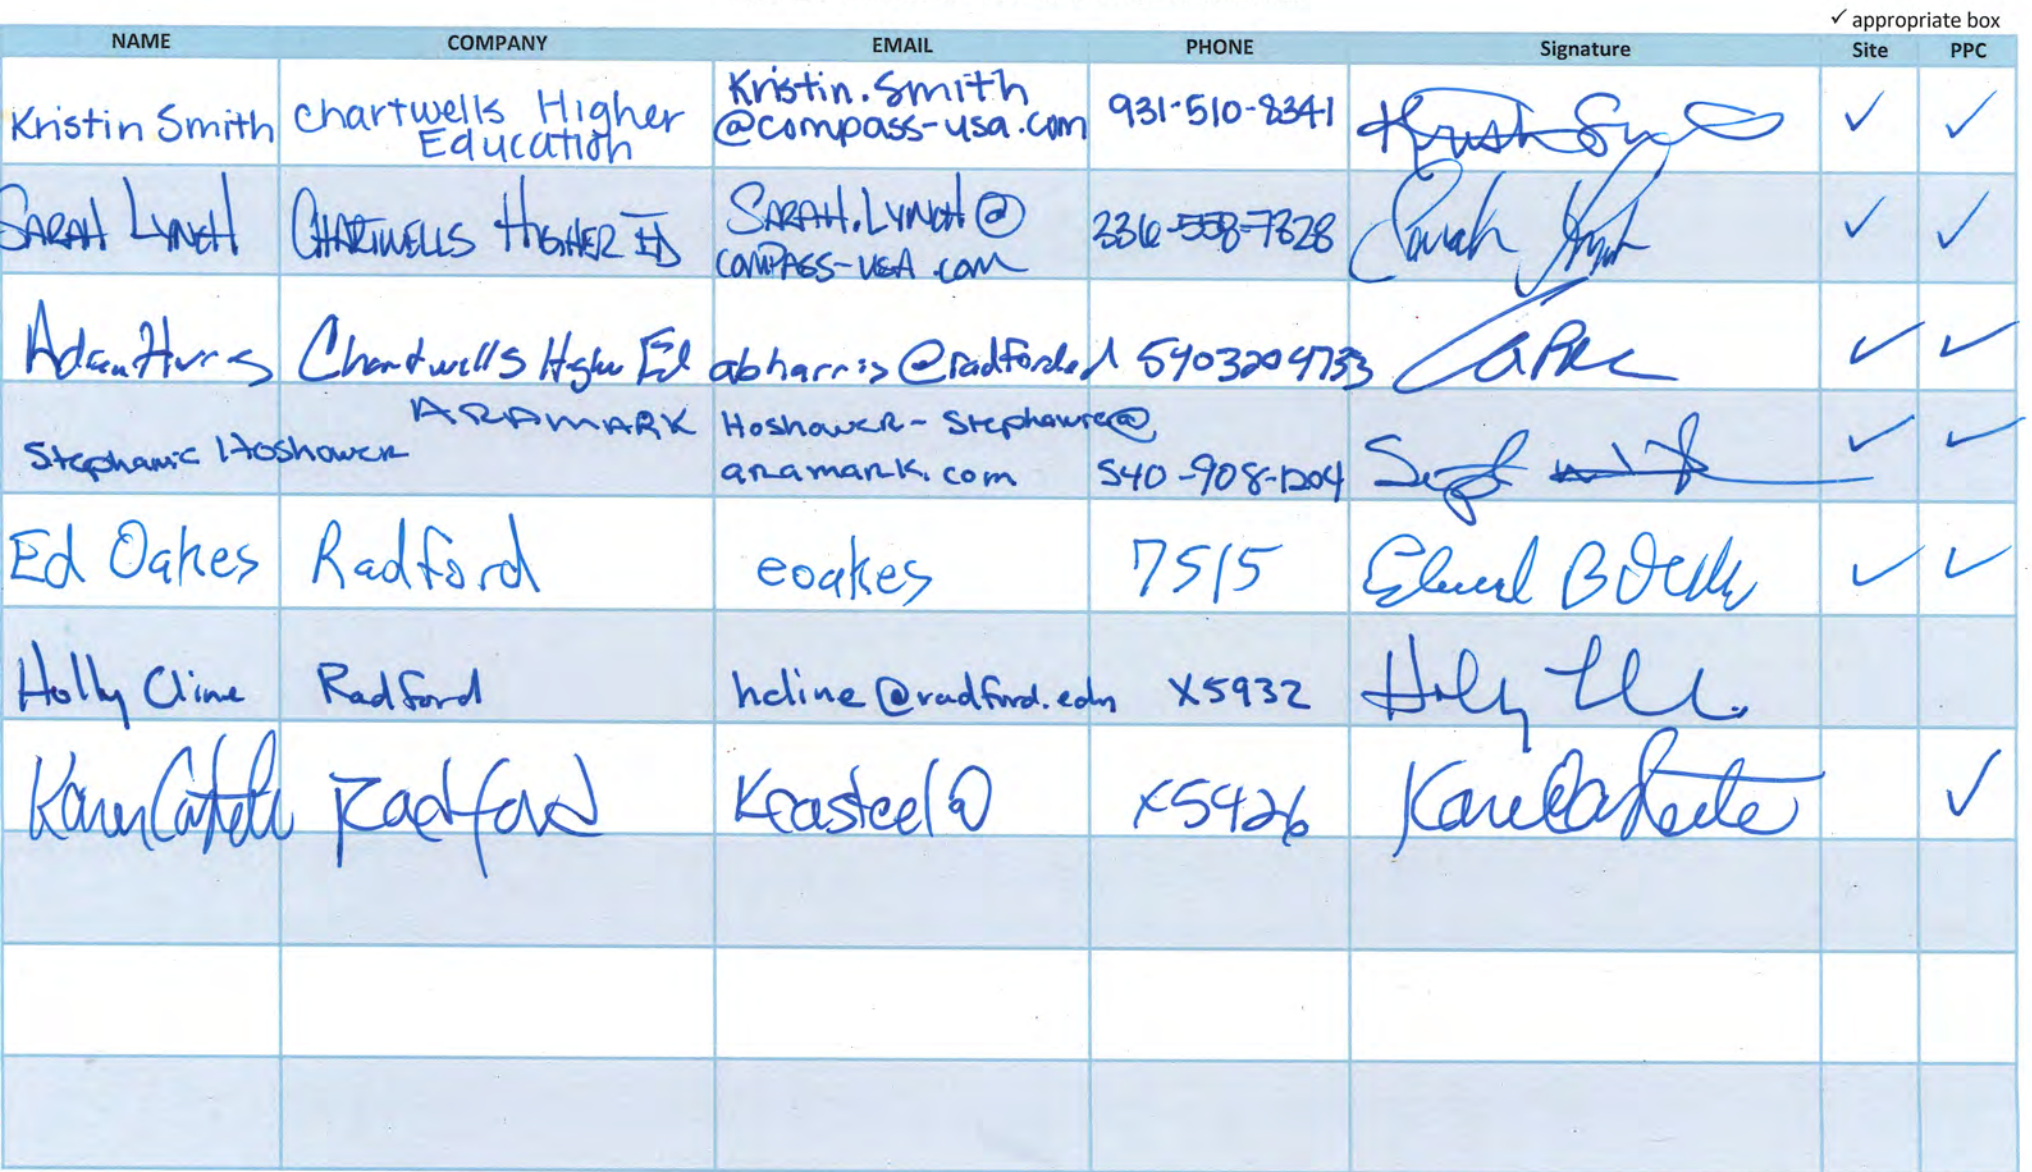 ✓ appropriate box
NAME COMPANY EMAIL PHONE Signature Site PPC
Kristin Smith chartwells Higher Education Kristin.Smith @compass-usa.com 931-510-8341 ✓ ✓
SARAH LYNCH CHARTWELLS HIGHER ED SARAH.LYNCH@ COMPASS-USA.COM 336-558-7328 Sarah Lynch ✓ ✓
Adam Harris Chartwells Higher Ed abharris@radford.ed 5403204733 ✓ ✓
Stephanie Hoshower ARAMARK Hoshower-Stephanie@ aramark.com 540-908-1204 ✓ ✓
Ed Oakes Radford eoakes 7515 ✓ ✓
Holly Cline Radford hcline@radford.edu X5932 Holly
Karen Casteele Radford Kcasteel@ X5426 Karen Casteele ✓